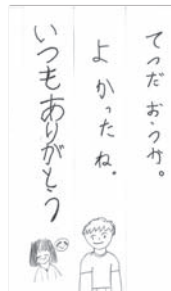 てつだおうか。
よかったね。
いつもありがとう